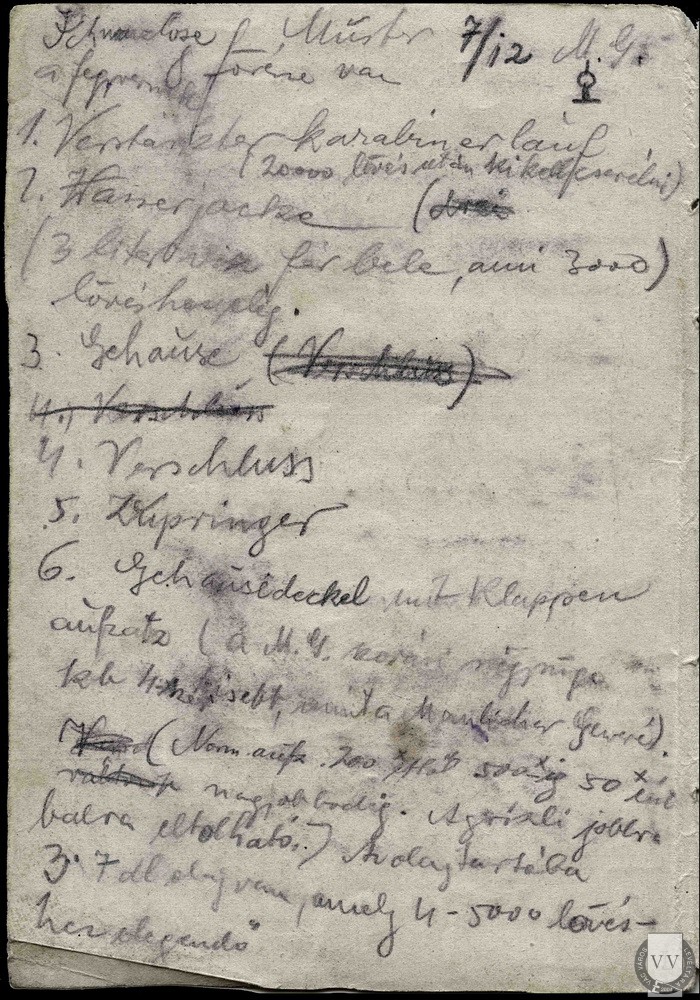 Schwarzlose Muster 7/12 M.G.
a fegyvernek 8 főrésze van
1. Verstärkter karabinerlauf
(20000 lövés után ki kell cserélni)
2. Wasserjacke
(3 liter víz fér bele, ami 3000)
lövéshez elég.
3. Gehäuse (Verschluss)
4.) Verschluss
4. Verschluss
5. Zubringer
6. Gehäusedeckel mit Klappen
aufsatz (a M.G.
kb kisebb, mint a Manlicher Gewehr).
(Norm. aufs. 200 500-ig 50
nagyobbodig. A grizli jobbra
balra eltolható.) Az olajtartóba
3, 7 dl olaj van, amely 4-5000 lövés-
hez elegendő
VV